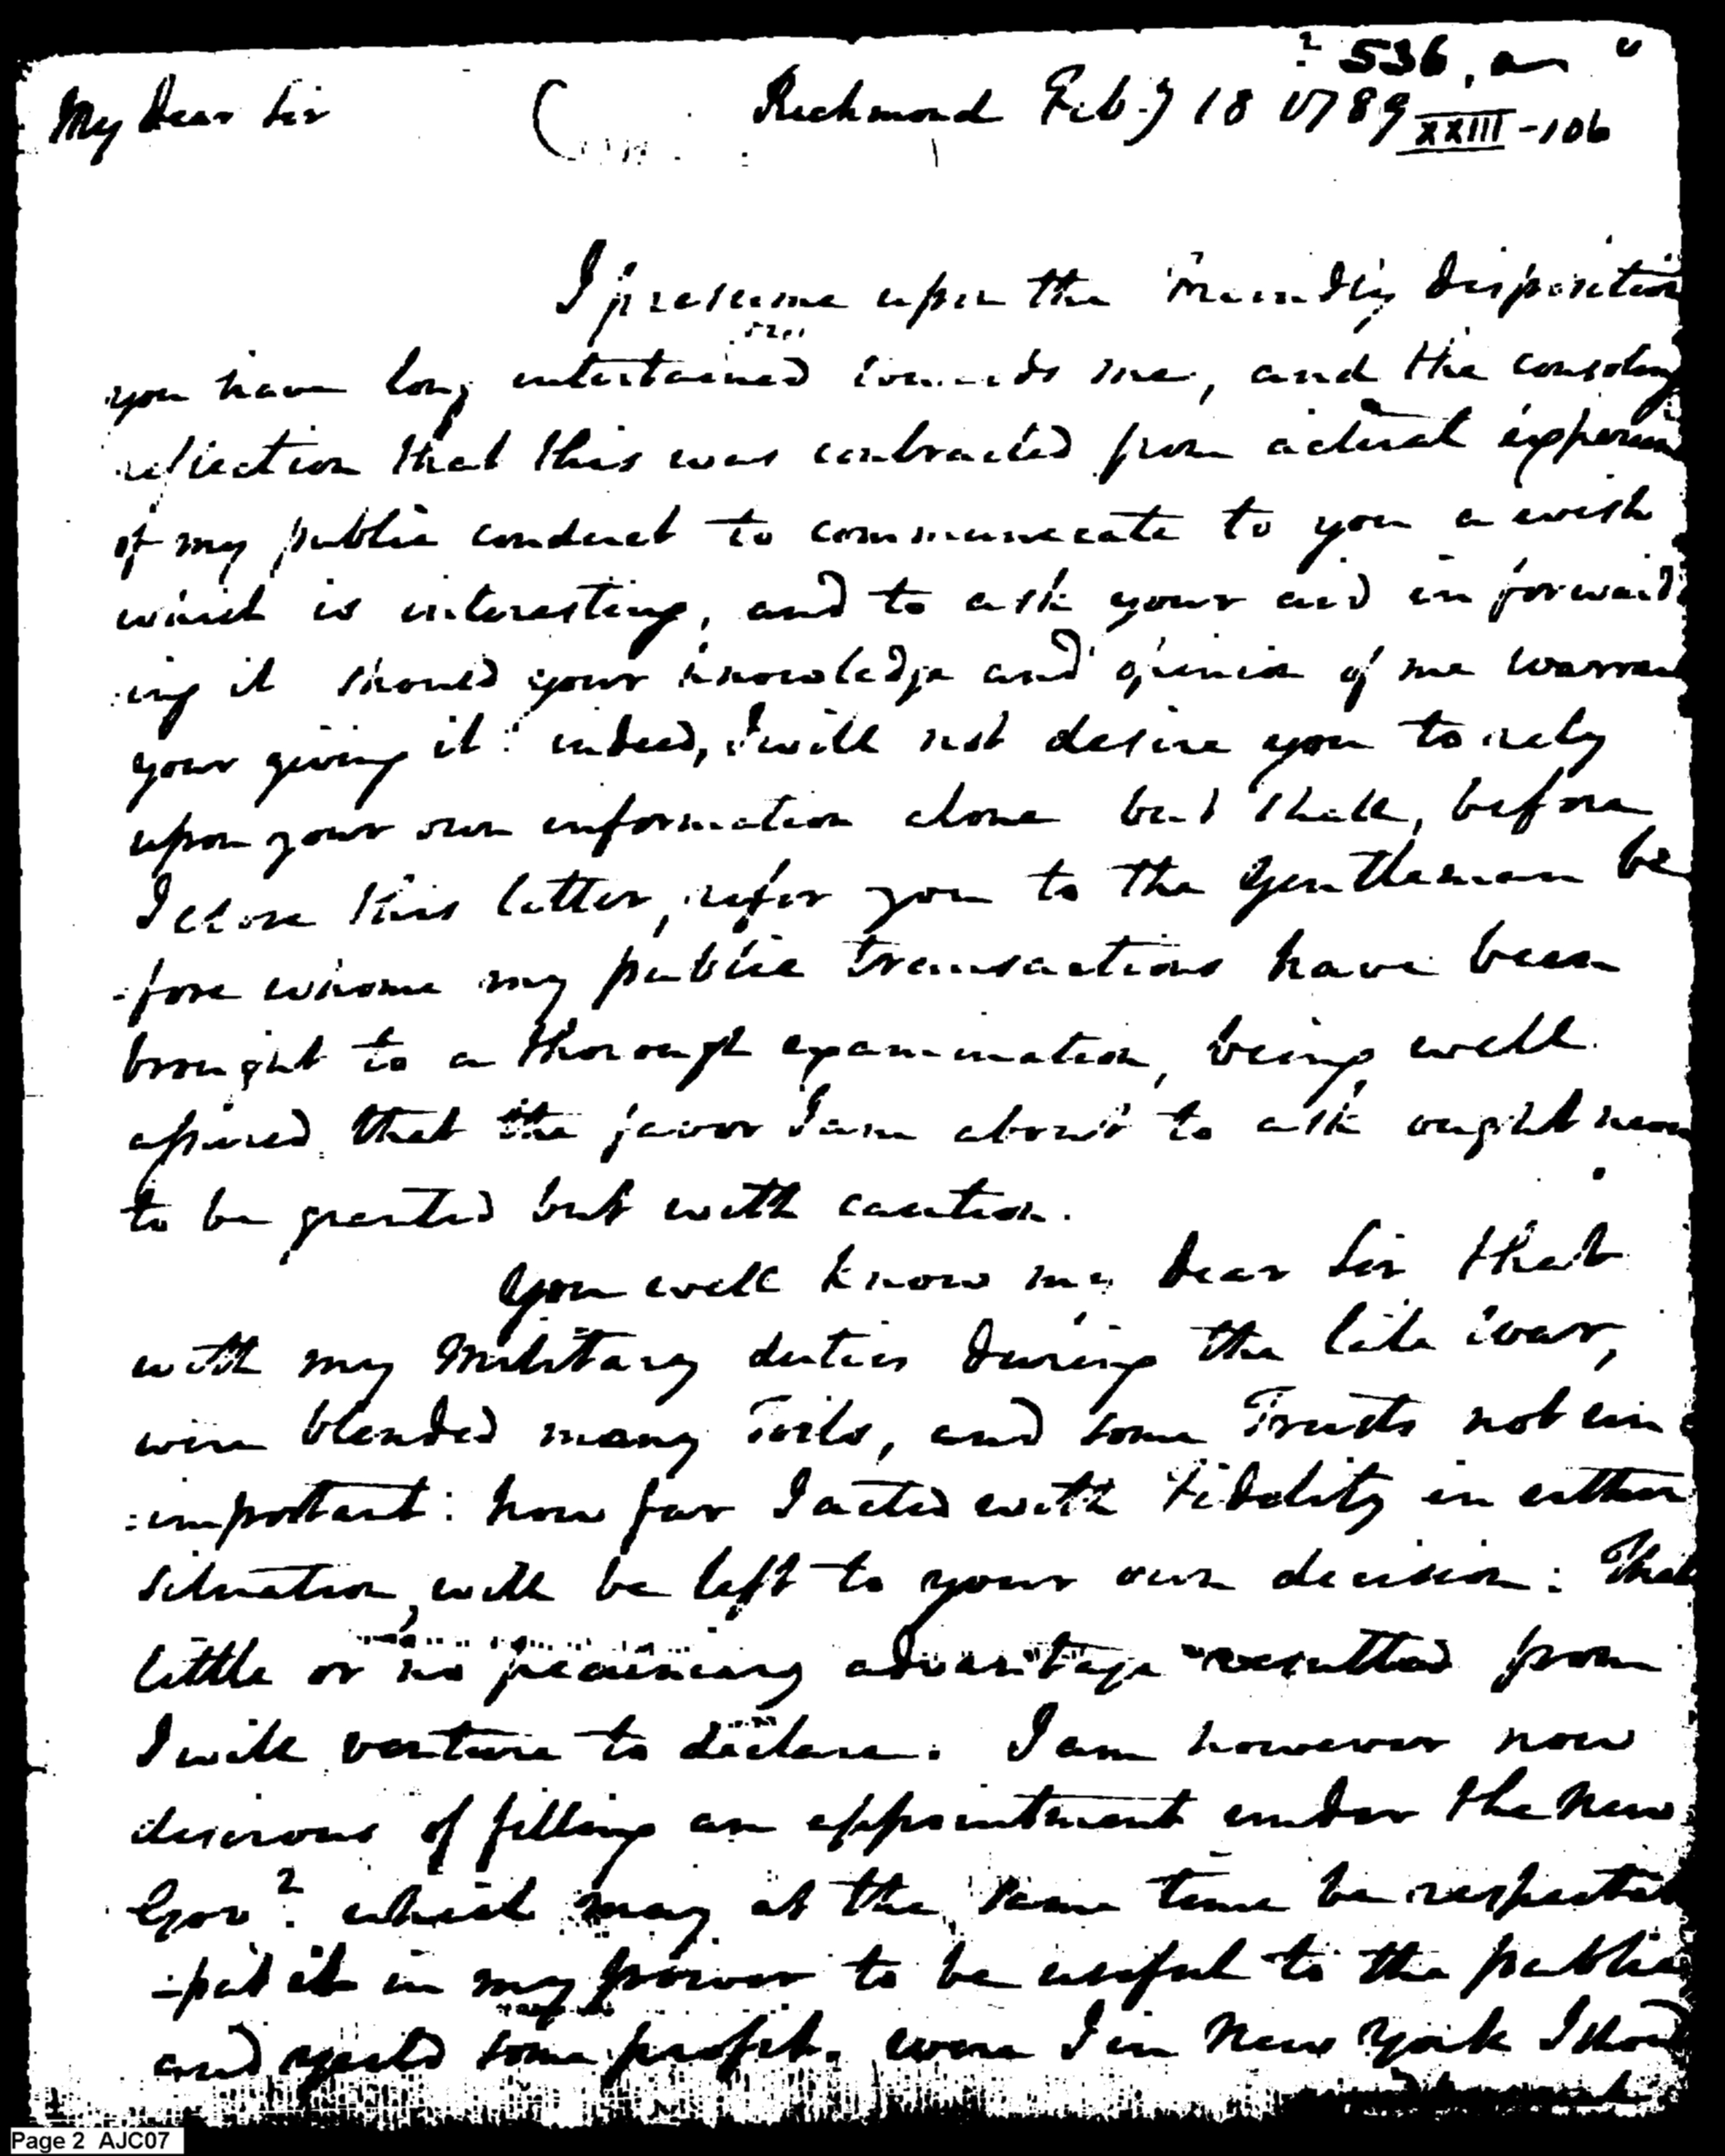 ? 536, a
My Dear Sir Richmond Feb.y 18 1789 XXIII-106
I presume upon the friendly disposition
you have long entertained towards me, and the consoling
reflection that this was contracted from actual experien
of my public conduct to communicate to you a wish
which is interesting, and to ask your aid in forward
:ing it should your knowledge and opinion of me warran
your giving it: indeed, I will not desire you to rely
upon your own information alone but shall, before
I close this letter, refer you to the Gentleman be
-fore whome my public transactions have been
brought to a thorough examination, being well
assured that the favor I am about to ask ought never
to be granted but with caution.
You well know my Dear Sir that
with my Military duties during the late War,
were blended many Toils, and some Trusts not un
:important: how far I acted with Fidelity in either
situation, will be left to your own decision: That
little or no pecuniary advantage resulted from
I will venture to declare. I am however now
desirous of filling an appointment under the New
Gov?. which may at the same time be respectab
-put it in my power to be useful to the public
and yield some profit. were I in New York I shou
Page 2 AJC07